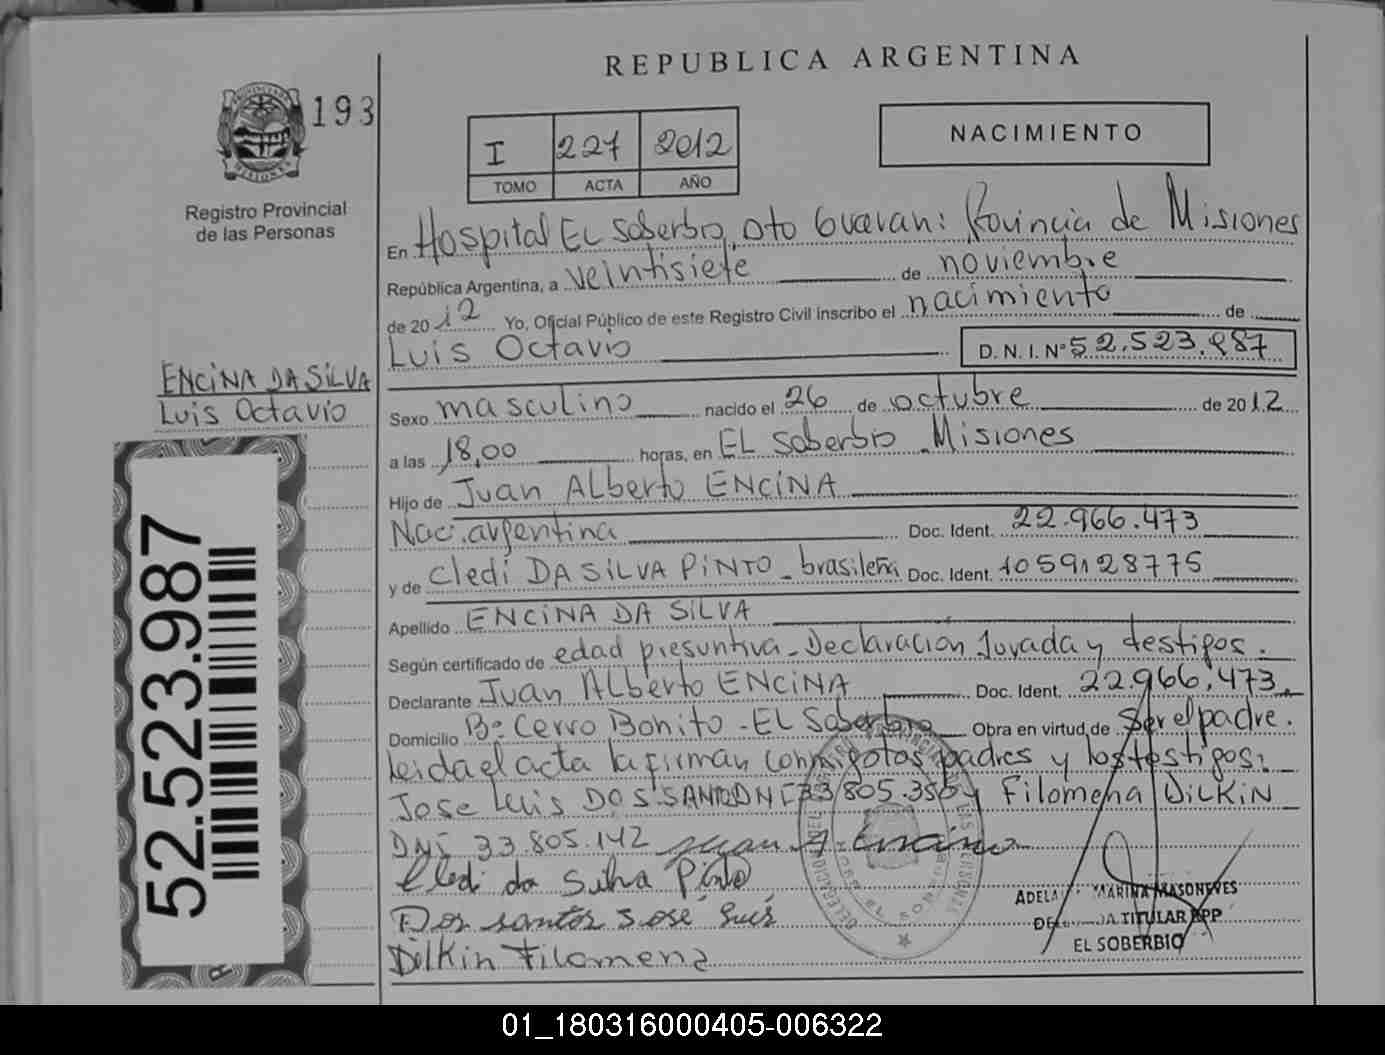 REPUBLICA ARGENTINA
PROVINCIA DE
MISIONES
193
Registro Provincial
de las Personas
I 227 2012
TOMO ACTA AÑO
NACIMIENTO
En Hospital EL Soberbio, Dto Guarani: Provincia de Misiones
República Argentina, a veintisiete de noviembre
de 2012 Yo, Oficial Público de este Registro Civil inscribo el nacimiento de
Luis Octavio D. N. I. Nº 52.523.987
ENCINA DA SILVA
Luis Octavio
Sexo masculino nacido el 26 de octubre de 2012
a las 18,00 horas, en EL Soberbio - Misiones
Hijo de Juan Alberto ENCINA
Nac. argentina Doc. Ident. 22.966.473
y de Cledi DA SILVA PINTO - brasileña Doc. Ident. 1059128775
Apellido ENCINA DA SILVA
Según certificado de edad presuntiva - Declaración Jurada y testigos.
Declarante Juan Alberto ENCINA Doc. Ident. 22.966.473
Domicilio Bº Cerro Bonito - EL Soberbio Obra en virtud de Ser el padre.
leida el acta la firman conmigo los padres y los testigos:
Jose Luis DOS SANTOS DNI 33.805.350 y Filomena DILKIN
DNI 33.805.142 Juan A. Encina
Cledi da Silva Pinto
Dos santos José Luis
Dilkin Filomena
MARINA MASONEVES
TITULAR RPP
EL SOBERBIO
52.523.987
01_180316000405-006322